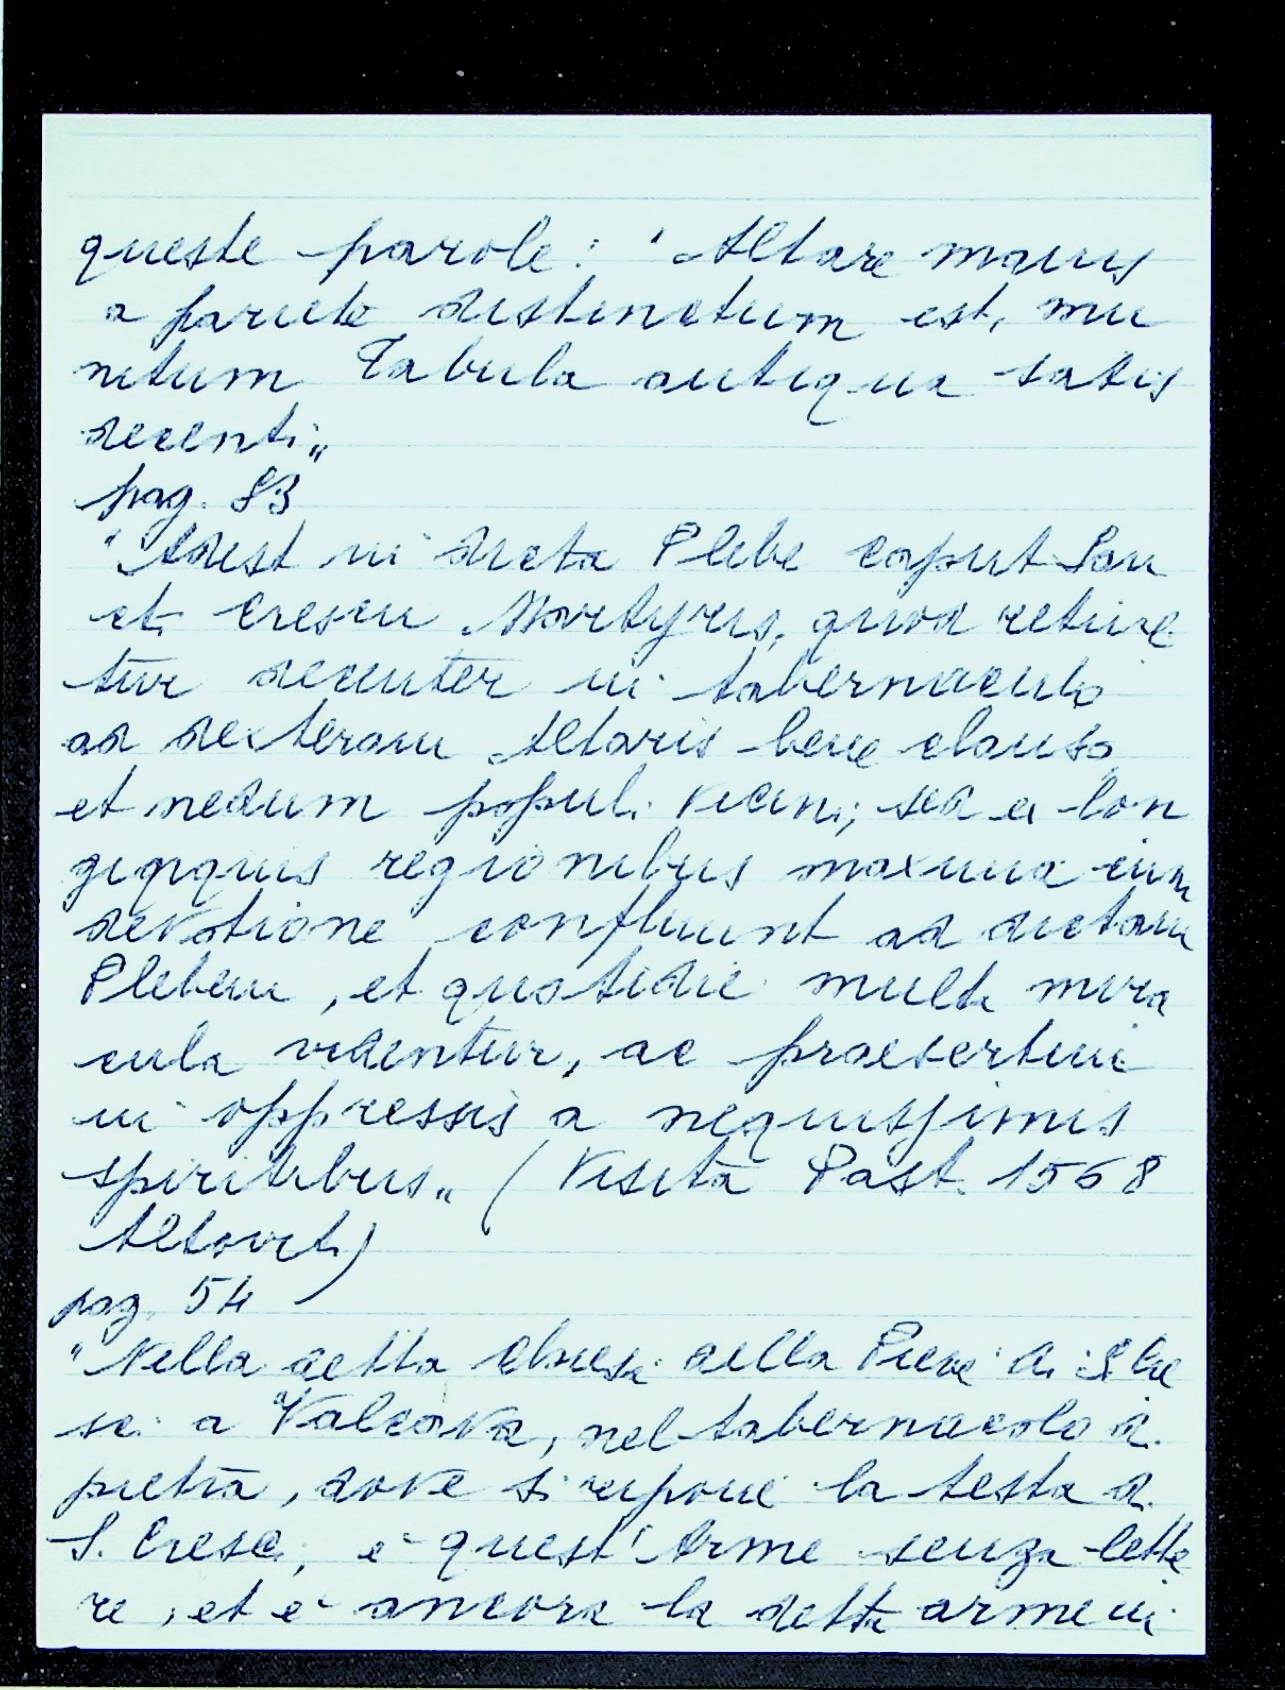 queste parole: "Altare maius
a pariete distinctum est, mu
nitum Tabula antiqua satis
decenti„
pag. 83
"Adest in dicta Plebe caput San
cti Cresci Martyris, quod retine
tur decenter in tabernaculo
ad dexteram Altaris bene clauso
et nedum populi vicini, sed a lon
giqquis regionibus maxima cum
devotione confluunt ad dictam
Plebem, et quotidie multa mira
cula videntur, ac praesertim
in oppressis a nequissimis
spiritibus„ (Visita Past. 1568
Altoviti)
pag. 54
"Nella detta Chiesa della Pieve di S. Cre
sci a Valcava, nel tabernacolo di
pietra, dove si ripone la testa di
S. Cresci, è quest'Arme senza lette
re, et è ancora la detta arme in